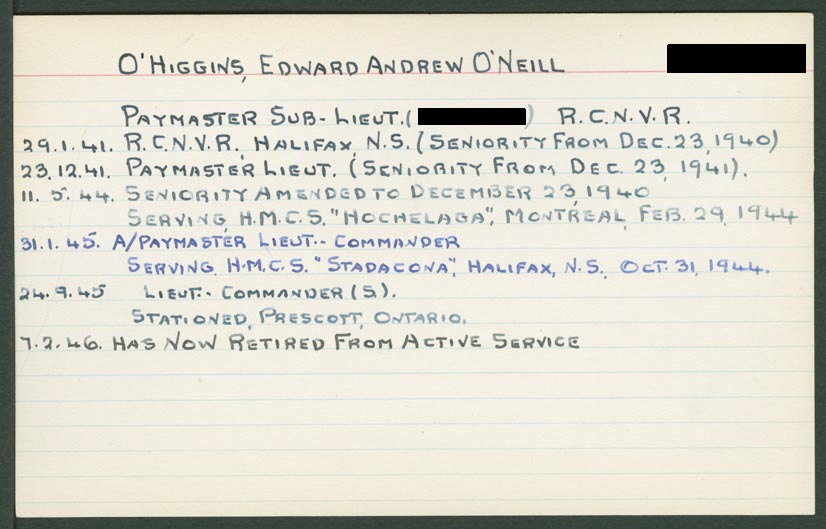 O'HIGGINS, EDWARD ANDREW O'NEILL
PAYMASTER SUB-LIEUT. ( ) R.C.N.V.R.
29.1.41. R.C.N.V.R. HALIFAX, N.S. (SENIORITY FROM DEC. 23, 1940)
23.12.41. PAYMASTER LIEUT. (SENIORITY FROM DEC. 23, 1941).
11. 5. 44. SENIORITY AMENDED TO DECEMBER 23, 1940
SERVING, H.M.C.S. "HOCHELAGA", MONTREAL, FEB. 29, 1944
31.1.45. A/PAYMASTER LIEUT.-COMMANDER
SERVING, H.M.C.S. "STADACONA", HALIFAX, N.S., OCT. 31, 1944.
24.9.45 LIEUT.-COMMANDER (S).
STATIONED, PRESCOTT, ONTARIO.
7.2.46. HAS NOW RETIRED FROM ACTIVE SERVICE